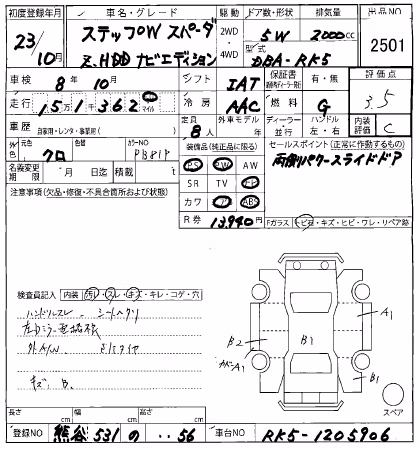 初度登録年月 車名・グレード 駆動 ドア数・形状 排気量 出品NO
23/10月 ステップW スパーダ 2WD・4WD 5W 2000cc 2501
Z.HDD ナビエディション 型式 DBA-RK5
車検 8年10月 シフト IAT 保証書 有・無 評価点
走行 15万1千362 マイル 冷房 AAC 燃料 G 3.5
車歴 自家用・レンタ・事業用 定員 8人 外車モデル 年 ディーラー・並行 ハンドル 左・右 内装評価 C
外色 元色 クロ 色替 カラーNO PB81P 装備品(純正品に限る) セールスポイント(正常に作動するもの)
名義変更期限 月 日迄 積載 PS PW AW 両側パワースライドドア
注意事項(欠品・修復・不具合箇所および状態) SR TV
カワ ABS
R券 13,940円 Fガラス キビ石・キズ・ヒビ・ワレ・リペア跡
検査員記入 内装 汚レ・スレ・キズ・キレ・コゲ・穴
ハンドルスレ シートヘタリ
キズ B.
A1
B2 B1
A1 B1
スペア
長さ cm 幅 cm 高さ cm
登録NO 熊谷 531 の ‥56 車台NO RK5-1205906